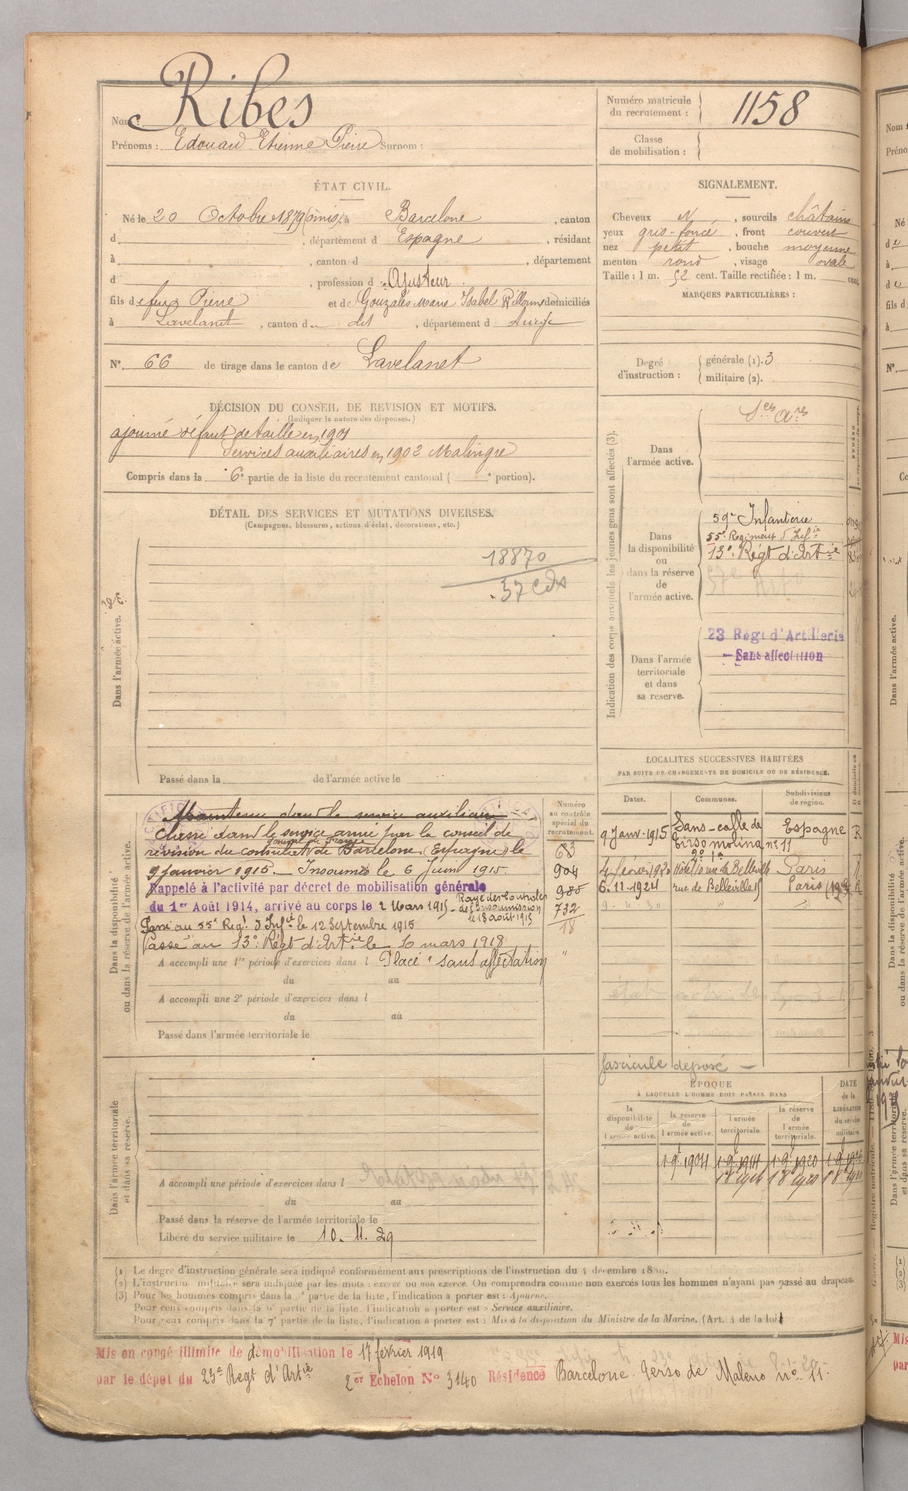 Nom Ribes
Prénoms : Edouard Etienne Pierre Surnom :
Numéro matricule du recrutement : 1158
Classe de mobilisation :
ÉTAT CIVIL.
Né le 20 Octobre 1879 (omis), à Barcelone, canton
d , département d Espagne, résidant
à , canton d , département
d , profession d'Ajusteur
fils de feu Pierre et de Gonzalès Marie Isabel domiciliés
à Lavelanet, canton du dit, département d Ariège
N° 66 de tirage dans le canton de Lavelanet
SIGNALEMENT.
Cheveux , sourcils châtains
yeux gris-foncé, front couvert
nez petit, bouche moyenne
menton rond, visage ovale
Taille : 1 m. 52 cent. Taille rectifiée : 1 m. cent.
MARQUES PARTICULIÈRES :
Degré d'instruction : générale (1). 3
militaire (2).
DÉCISION DU CONSEIL DE REVISION ET MOTIFS.
(Indiquer la nature des dispenses.)
ajourné défaut de taille en 1901
Services auxiliaires en 1902 Malingre
Compris dans la 6e partie de la liste du recrutement cantonal ( e portion).
DÉTAIL DES SERVICES ET MUTATIONS DIVERSES.
(Campagnes, blessures, actions d'éclat, décorations, etc.)
18870
37
Dans l'armée active.
Passé dans la de l'armée active le
Indication des corps auxquels les jeunes gens sont affectés (3).
Dans l'armée active.
Dans la disponibilité ou dans la réserve de l'armée active.
59e Infanterie
55e Régiment d'Infie
13e Régt d'Artie
Dans l'armée territoriale et dans sa reserve.
23 Régt d'Artillerie
- Sans affectation
LOCALITÉS SUCCESSIVES HABITÉES
PAR SUITE DE CHANGEMENTS DE DOMICILE OU DE RÉSIDENCE.
Dates. Communes. Subdivisions de région.
9 Janv. 1915 Sans-calle de Espagne
4 février 1920 Paris
6.11.1924 rue de Belleville Paris
9.4.30
Dans la disponibilité ou dans la réserve de l'armée active.
Numéro au contrôle spécial du recrutement.
63
904
980
732
18
Maintenu dans le service auxiliaire
Classé dans le service armé par le conseil de
révision du consulat de France de Barcelone (Espagne) le
9 janvier 1915. - Insoumis le 6 Juin 1915.
Rappelé à l'activité par décret de mobilisation générale
du 1er Août 1914, arrivé au corps le 2 Mars 1915
Rayé des contrôles de l'insoumission le 18 août 1915
Passé au 55e Régt d'Infie le 12 Septembre 1915
Passé au 13e Régt d'Artie le 10 mars 1918
A accompli une 1re période d'exercices dans l Placé "sans affectation"
du au
A accompli une 2e période d'exercices dans l
du au
Passé dans l'armée territoriale le
fascicule déposé -
ÉPOQUE
À LAQUELLE L'HOMME DOIT PASSER DANS
la disponibilité de l'armée active.
la réserve de l'armée active.
l'armée territoriale.
la réserve de l'armée territoriale.
DATE de la LIBÉRATION du service militaire.
1 9e 1904
Dans l'armée territoriale et dans sa réserve.
A accompli une période d'exercices dans l
du au
Passé dans la réserve de l'armée territoriale le
Libéré du service militaire le 10.11.29
(1) Le degré d'instruction générale sera indiqué conformément aux prescriptions de l'instruction du 4 décembre 1889.
(2) L'instruction militaire sera indiquée par les mots : exercé ou non exercé. On comprendra comme non exercés tous les hommes n'ayant pas passé au drapeau
(3) Pour les hommes compris dans la partie de la liste, l'indication à porter est : Ajourné.
Pour ceux compris dans la 6e partie de la liste, l'indication à porter est : Service auxiliaire.
Pour ceux compris dans la 7e partie de la liste, l'indication à porter est : Mis à la disposition du Ministre de la Marine. (Art. 4 de la loi
Mis en congé illimité de démobilisation le 17 février 1919
par le dépôt du 23e Régt d'Artie 2er Echelon N° 3140 Résidence Barcelone